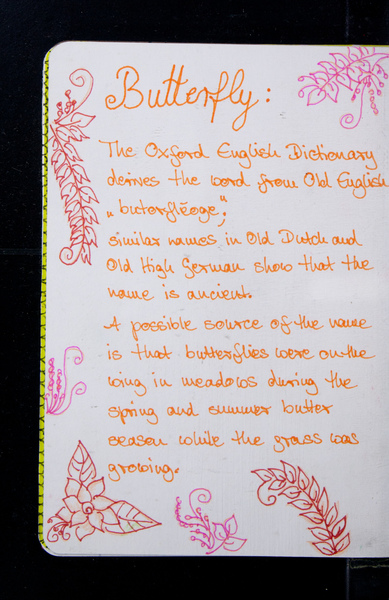 Butterfly:
The Oxford English Dictionary
derives the word from Old English
„buterflēoge“;
similar names in Old Dutch and
Old High German show that the
name is ancient.
A possible source of the name
is that butterflies were on the
wing in meadows during the
spring and summer butter
season while the grass was
growing.